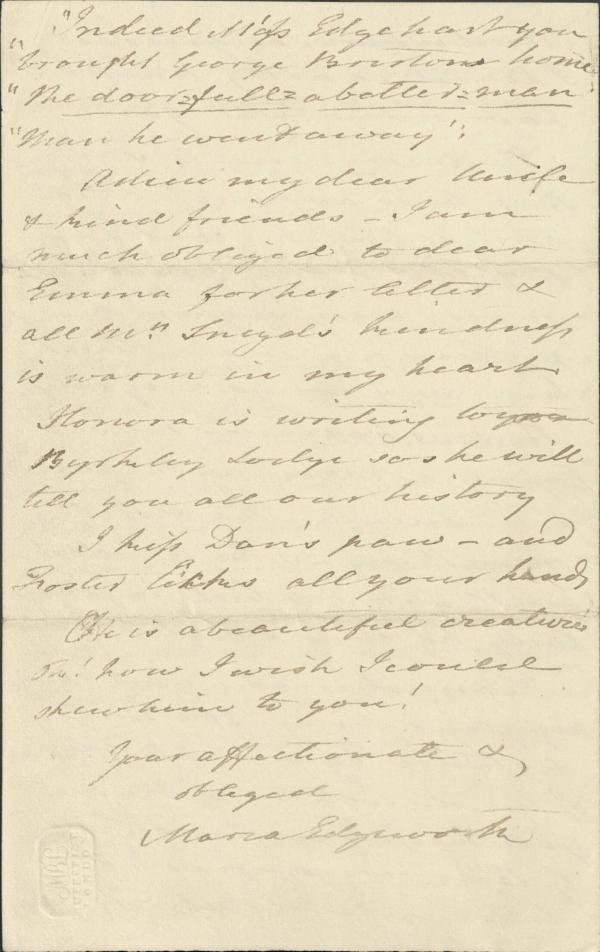 "Indeed Miss Edgehart you
"brought George Bristow home
"the door=full=a better=man
"than he went away".
Adieu my dear Aunts
& kind friends – I am
much obliged to dear
Emma for her letter &
all Mrs. Sneyd's kindness
is warm in my heart
Honora is writing to
Byrkley Lodge so she will
tell you all our history
I kiss Dan's paw – and
Foster licks all your hands
He is a beautiful creature
Oh! how I wish I could
shew him to you!
Your affectionate &
obliged
Maria Edgeworth